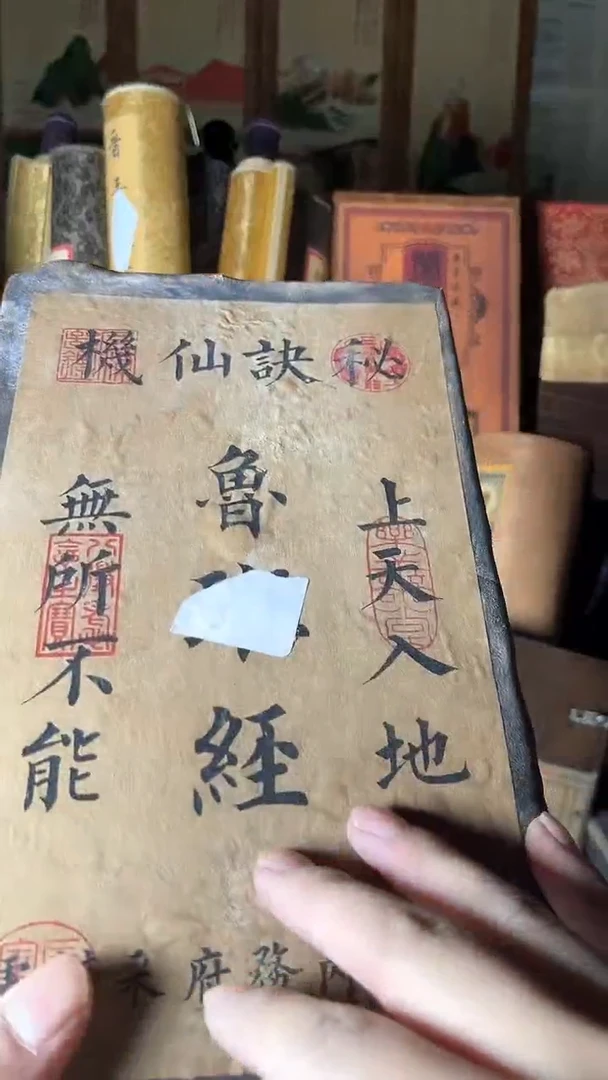 秘訣仙機
上天入地
魯經
無所不能
務府